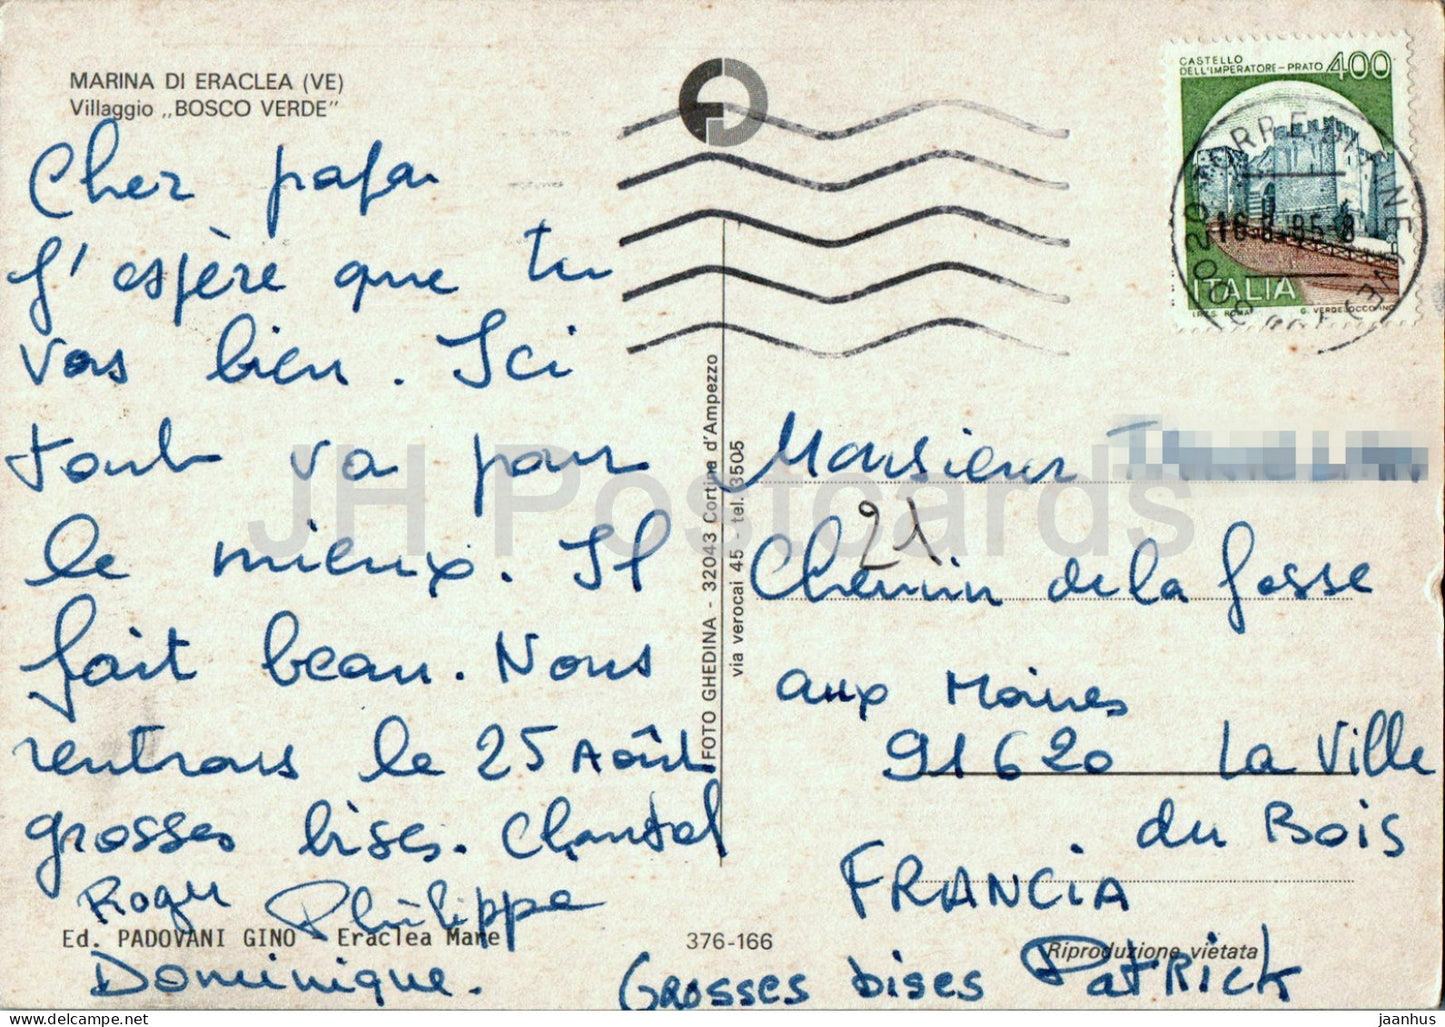 MARINA DI ERACLEA (VE)
Villaggio „BOSCO VERDE”
Cher papa
J'espère que tu
vas bien. Ici
tout va pour
le mieux. Il
fait beau. Nous
rentrons le 25 Août
grosses bises. Chantal
Roger Philippe
Dominique.
Grosses bises Patrick
Ed. PADOVANI GINO - Eraclea Mare
376-166
Riproduzione vietata
FOTO GHEDINA - 32043 Cortina d'Ampezzo
via verocai 45 - tel. 3505
CASTELLO
DELL'IMPERATORE-PRATO 400
ITALIA
I.P.Z.S. ROMA G. VERDELOCCO INC.
30020 TORRE DI FINE (VE)
16.8.85-8
Monsieur
21
Chemin de la fosse
aux Moines
91620 La Ville
du Bois
FRANCIA
JH Postcards
jaanhus | delcampe.net